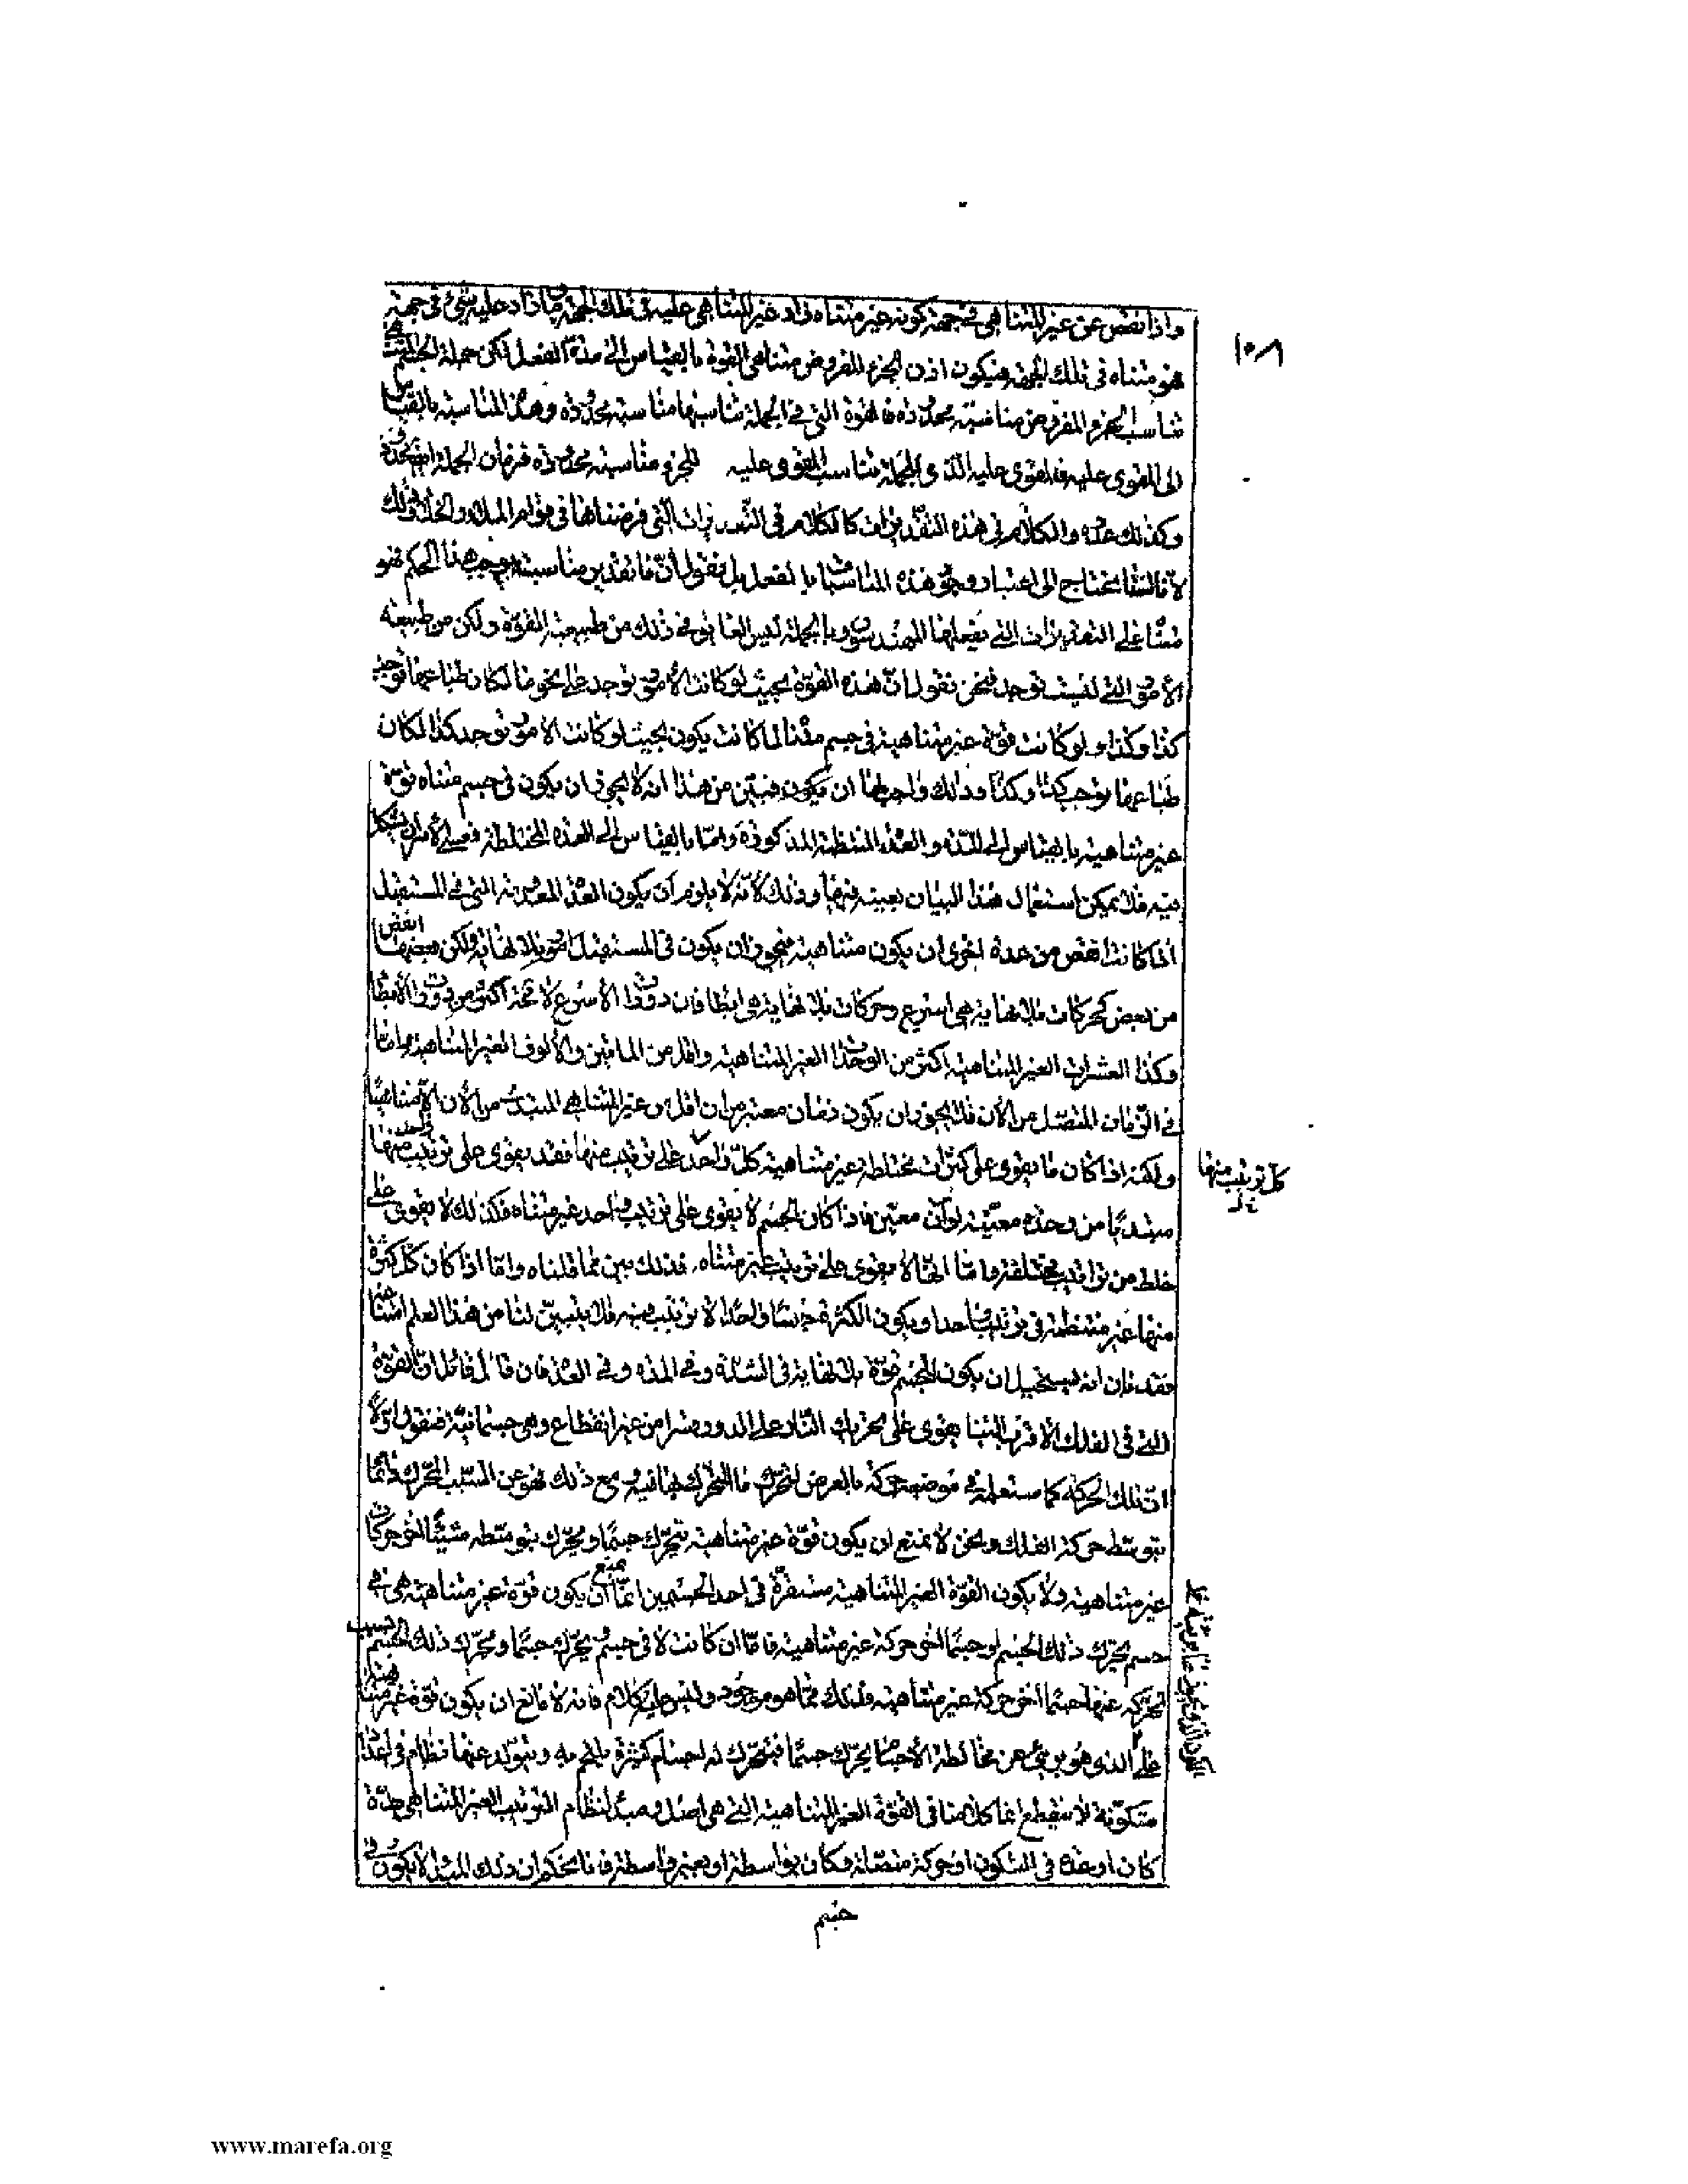 ١٠٨
واذا نقص عن غير المتناهى فى جهة كونه غير متناه زاد غير المتناهى عليه فى تلك الجهة فاذا زاد عليه شئ فى جهة
فهو متناه فى تلك الجهة فيكون اذن الجزء المفروض متناهى القوة بالقياس الى مدة الفعل لكن جملة الجسم المتناهى
تناسب الجزء المفروض مناسبة محدودة فالقوة التى فى الجملة تناسبها مناسبة محدودة وهذه المناسبة بالقياس
الى المقوى عليه فالمقوى عليه الذى للجملة تناسب المقوى عليه للجزء مناسبة محدودة فزمان الجملة ايضا محدود
وكذلك عدده والكلام فى هذه التقديرات كالكلام فى التقديرات التى فرضناها فى باب الملاء والخلاء وذلك
لانا لسنا نحتاج الى اعتبار وجود هذه المناسبات بالفعل بل نقول ان ما تقدير مناسبته يوجب هذا الحكم فهو
على التقديرات التى يفعلها المهندسون وبالجملة ليس العائق فى ذلك من طبيعة القوة ولكن من طبيعة
الأمور التى ليست توجد فنحن نقول ان هذه القوة بحيث لو كانت الأمور توجد على نحو ما لكان طباعها توجب
كذا وكذا ولو كانت قوة غير متناهية فى جسم متناه لما كانت يكون بحيث لو كانت الأمور توجد كذا لكان
طباعها يوجب كذا وكذا وذلك واجب لها ان يكون فبين من هذا انه لا يجوز ان يكون فى جسم متناه قوة
غير متناهية بالقياس الى المدة والعدة المنتظمة المذكورة واما بالقياس الى العدة المختلطة فعسى الأمر ان يشكل
فيه فلا يمكن استعمال هذا البيان بعينه فيها وذلك لأنه لا يلزم ان يكون العدة المعدومة التى فى المستقبل
اذا كانت انقص من عدة اخرى ان يكون متناهية فيجوز ان يكون فى المستقبل امور بلا نهاية ولكن بعضها انقص
من بعض كحركات بلا نهاية هى اسرع وحركات بلا نهاية هى ابطأ فان دورات الأسرع لا محة اكثر من دورات الأبطأ
وكذا العشرات الغير المتناهية اكثر من الوحدات الغير المتناهية واقل من المائين والألوف الغير المتناهية واما
فى الزمان المتصل من الآن فلا يجوز ان يكون زمان معتبر من ان اقل من غير المتناهى المبتدئ من الآن الا متناهيا
ولكنه اذا كان ما يقوى على كثرات مختلطة غير متناهية كل واحد على ترتيب منها فقد يقوى على ترتيب واحد منها
كل ترتيب منها
خ ل
مبتديا من وحدة معينة او آن معين فاذا كان الجسم لا يقوى على ترتيب واحد غير متناه فكذلك لا يقوى على
خلط من تراتيب مختلفة فاما انها لا يقوى على ترتيب غير متناه فذلك بين مما قلناه واما اذا كان كل كثرة
منها غير منتظمة فى ترتيب واحد او يكون الكثرة جنسا واحدا لا ترتيب فيه فلا يتبين لنا من هذا العلم امتناعه
فقد بان انه يستحيل ان يكون للجسم قوة بلا نهاية فى الشدة وفى المدة وفى العدة فان قال قائل ان القوة
التى فى الفلك الأقرب الينا يقوى على تحريك النار على الدور دهرا من غير انقطاع وهى جسمانية فنقول اولا
ان تلك الحركة كما ستعلم فى موضعه حركة بالعرض مع ذلك فهو عن السبب المحرك دائما
بتوسط حركة الفلك ونحن لا نمنع ان يكون قوة غير متناهية تحرك جسما ويحرك بتوسطه شيئا اخر حركات
غير متناهية ولا يكون القوة الغير المتناهية مستقرة فى احد الجسمين انما نمنع ان يكون قوة غير متناهية هى فى
جسم يحرك ذلك الجسم او جسما اخر حركة غير متناهية فاما ان كانت لا فى جسم يحرك جسما ويحرك ذلك الجسم بسبب
تحركه عنها جسما اخر حركة غير متناهية فذلك مما هو موجود وليس عليه كلام فانه لا مانع ان يكون قوة غير متناهية
على الذى هو برئ عن مخالطة الأجسام يحرك جسما فيتحرك له اجسام كثيرة ويتولد عنها نظام فى اعداد
متكونة لا ينقطع انما كلامنا فى القوة الغير المتناهية التى هى اصل ومبدأ لنظام الترتيب الغير المتناهى مدة
كان او عدة فى التكون او حركة متصلة وكان بواسطة او بغير واسطة فانا نحكم ان ذلك المبدأ لا يكون فى
جسم
www.marefa.org